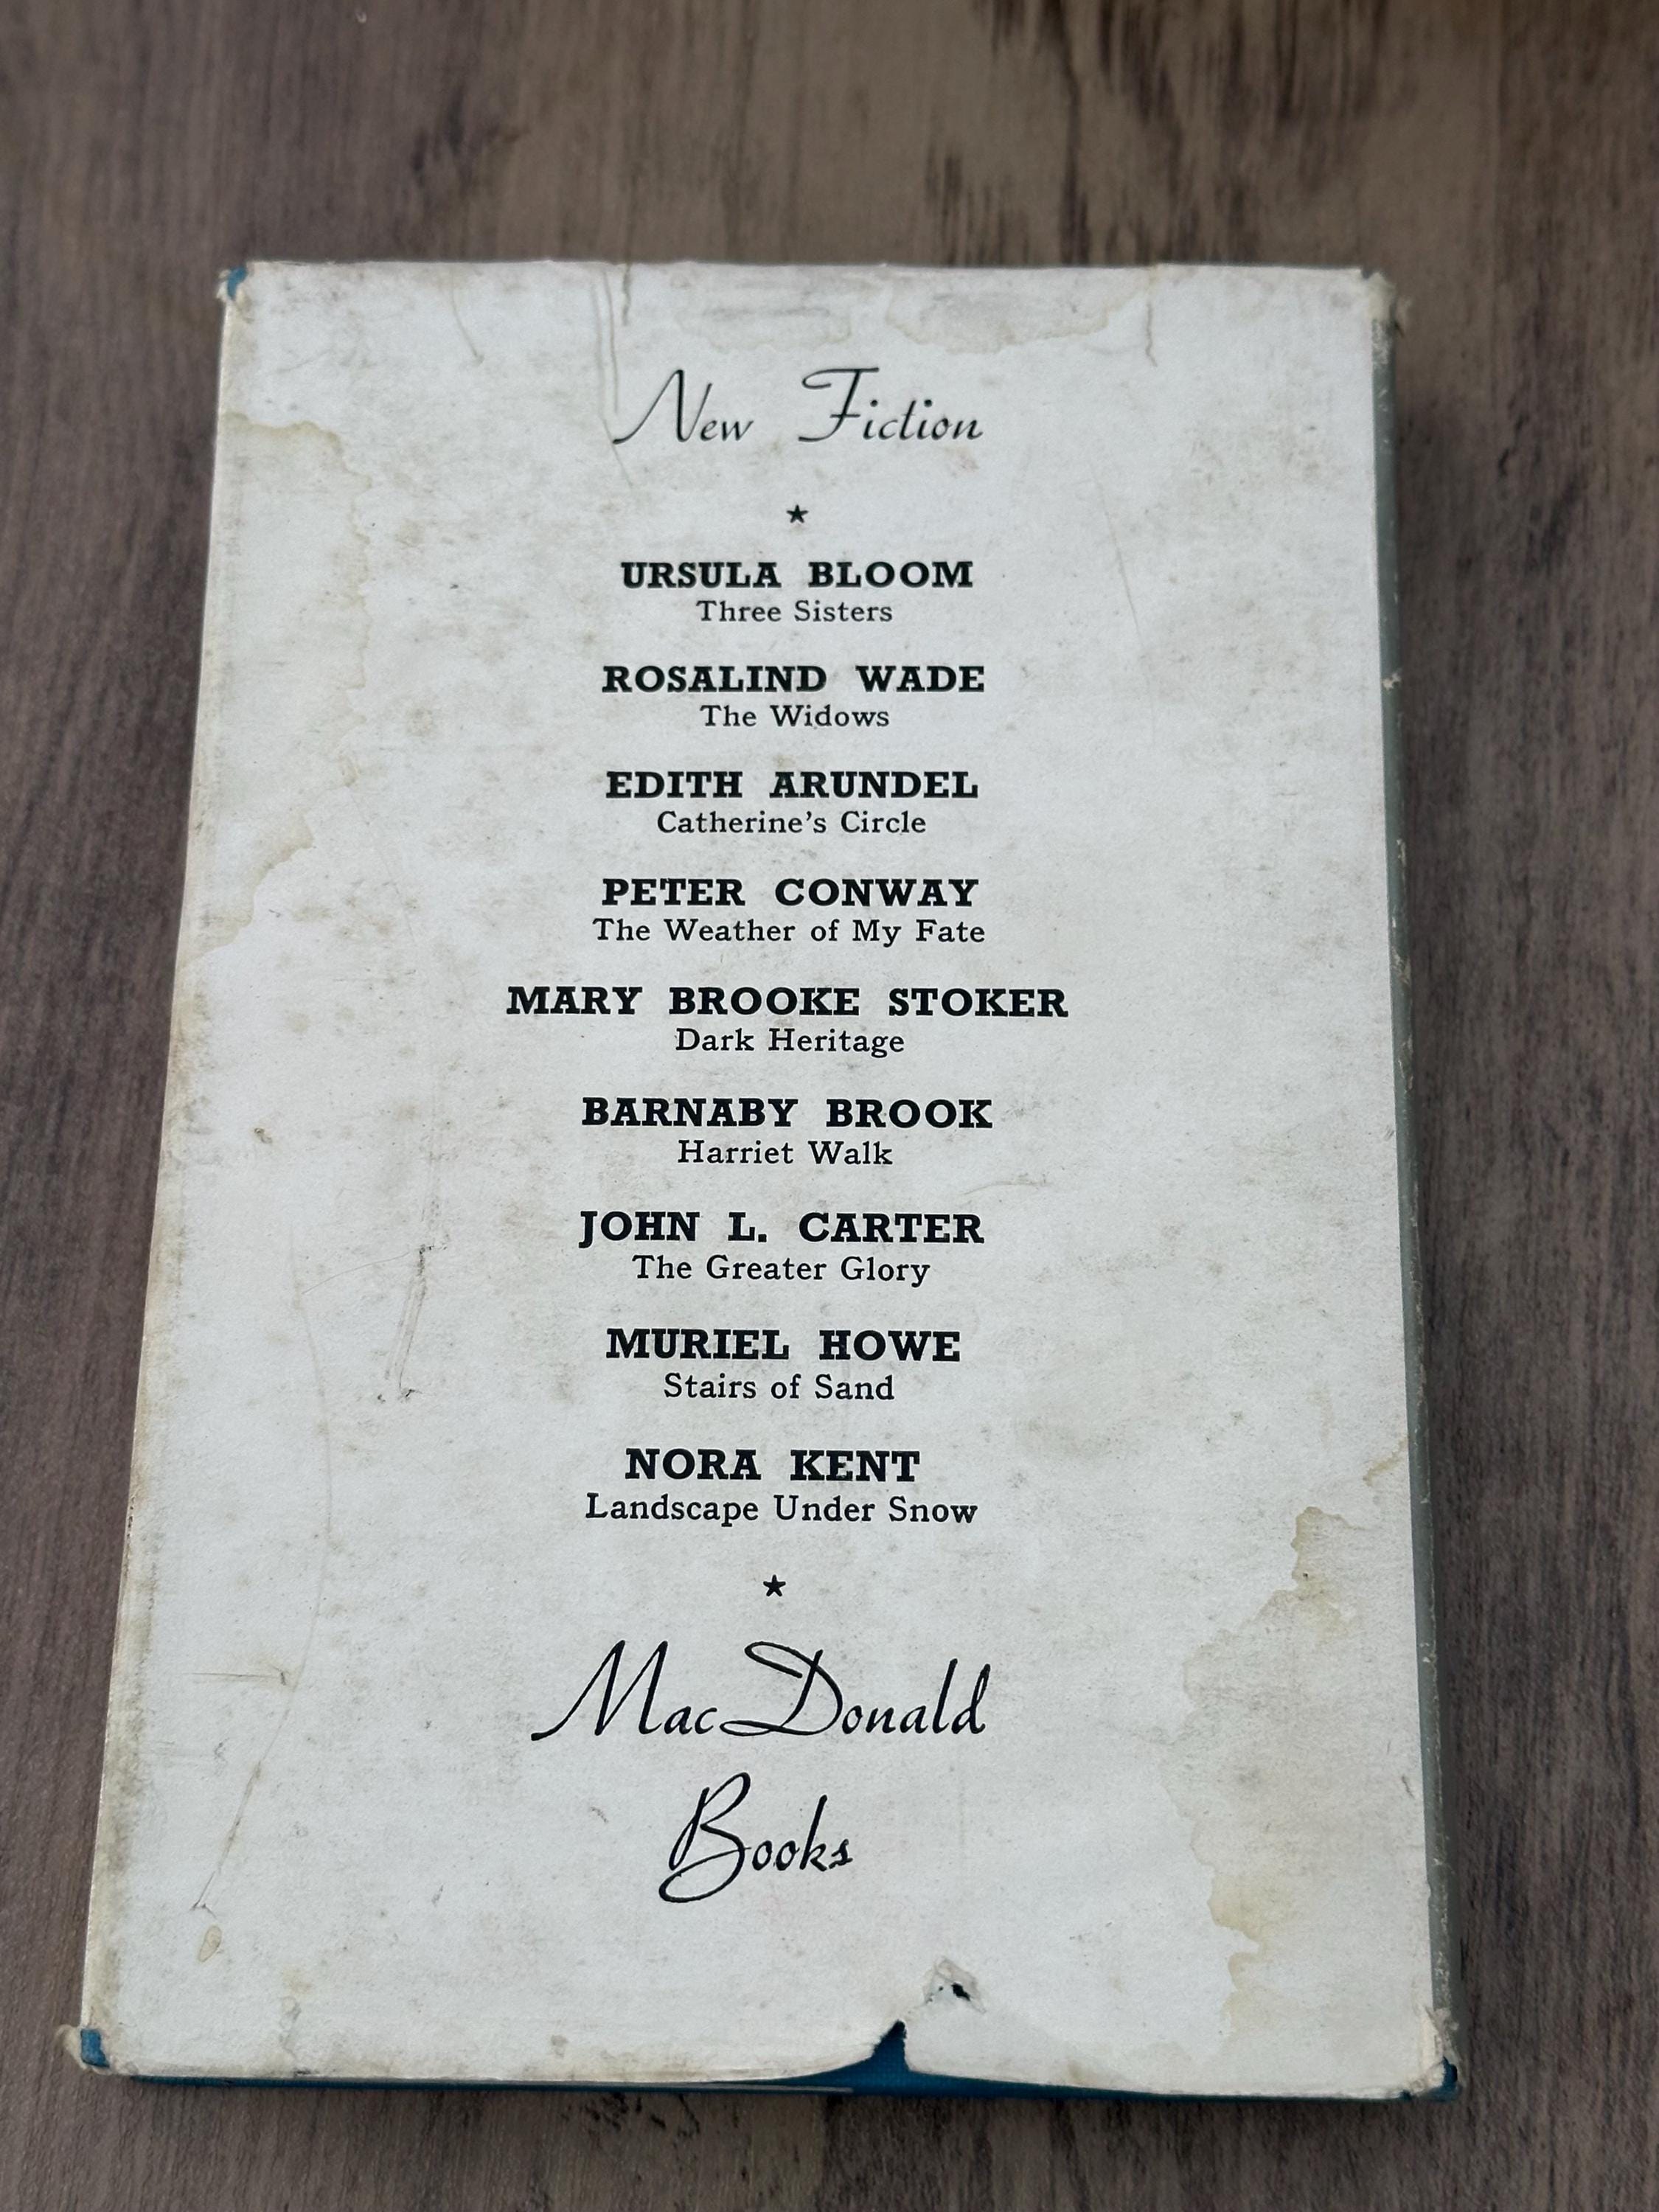 New Fiction
★
URSULA BLOOM
Three Sisters
ROSALIND WADE
The Widows
EDITH ARUNDEL
Catherine's Circle
PETER CONWAY
The Weather of My Fate
MARY BROOKE STOKER
Dark Heritage
BARNABY BROOK
Harriet Walk
JOHN L. CARTER
The Greater Glory
MURIEL HOWE
Stairs of Sand
NORA KENT
Landscape Under Snow
★
MacDonald
Books